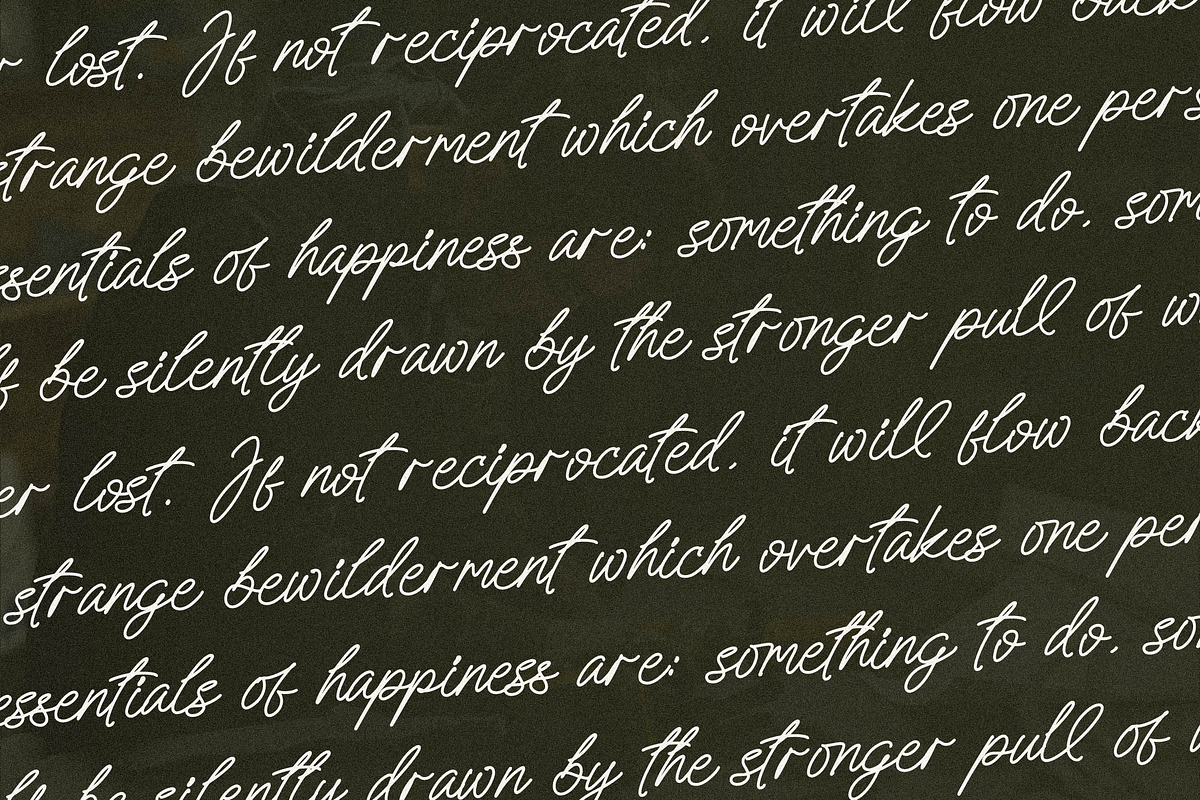 lost. If not reciprocated, it will flow back
strange bewilderment which overtakes one pers
ssentials of happiness are: something to do, som
lf be silently drawn by the stronger pull of w
er lost. If not reciprocated, it will flow back
strange bewilderment which overtakes one per
essentials of happiness are: something to do, so
lf be silently drawn by the stronger pull of w